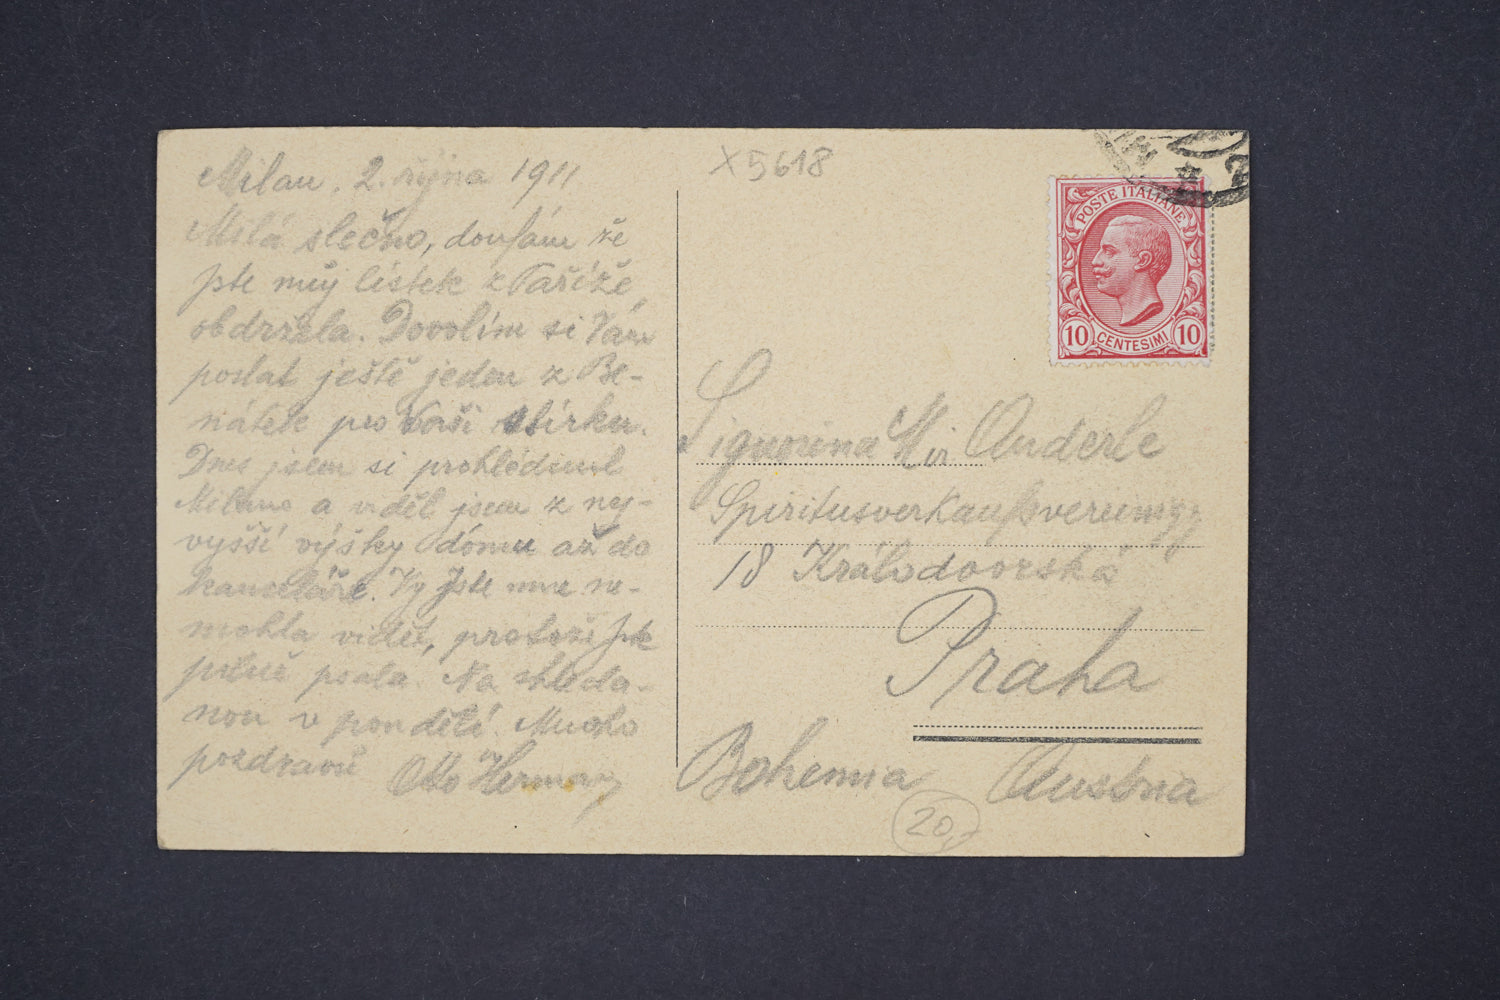 Milan. 2. října 1911
Milá slečno, doufám že
jste můj lístek z Paříže
obdržela. Dovolím si Vám
poslat ještě jeden z Be-
nátek pro Vaši sbírku.
Dnes jsem si prohlédnul
Milano a viděl jsem z nej-
vyšší výšky dómu až do
kanceláře. Vy jste mne ne-
mohla vidět, protože jste
pilně psala. Na shleda-
nou v pondělí. Mnoho
pozdravů Otto Herman
X5618
POSTE ITALIANE
10 CENTESIMI 10
Signorina Anderle
Spiritusverkaufsvereinigg
18 Králodvorská
Praha
Bohemia Austria
20,-